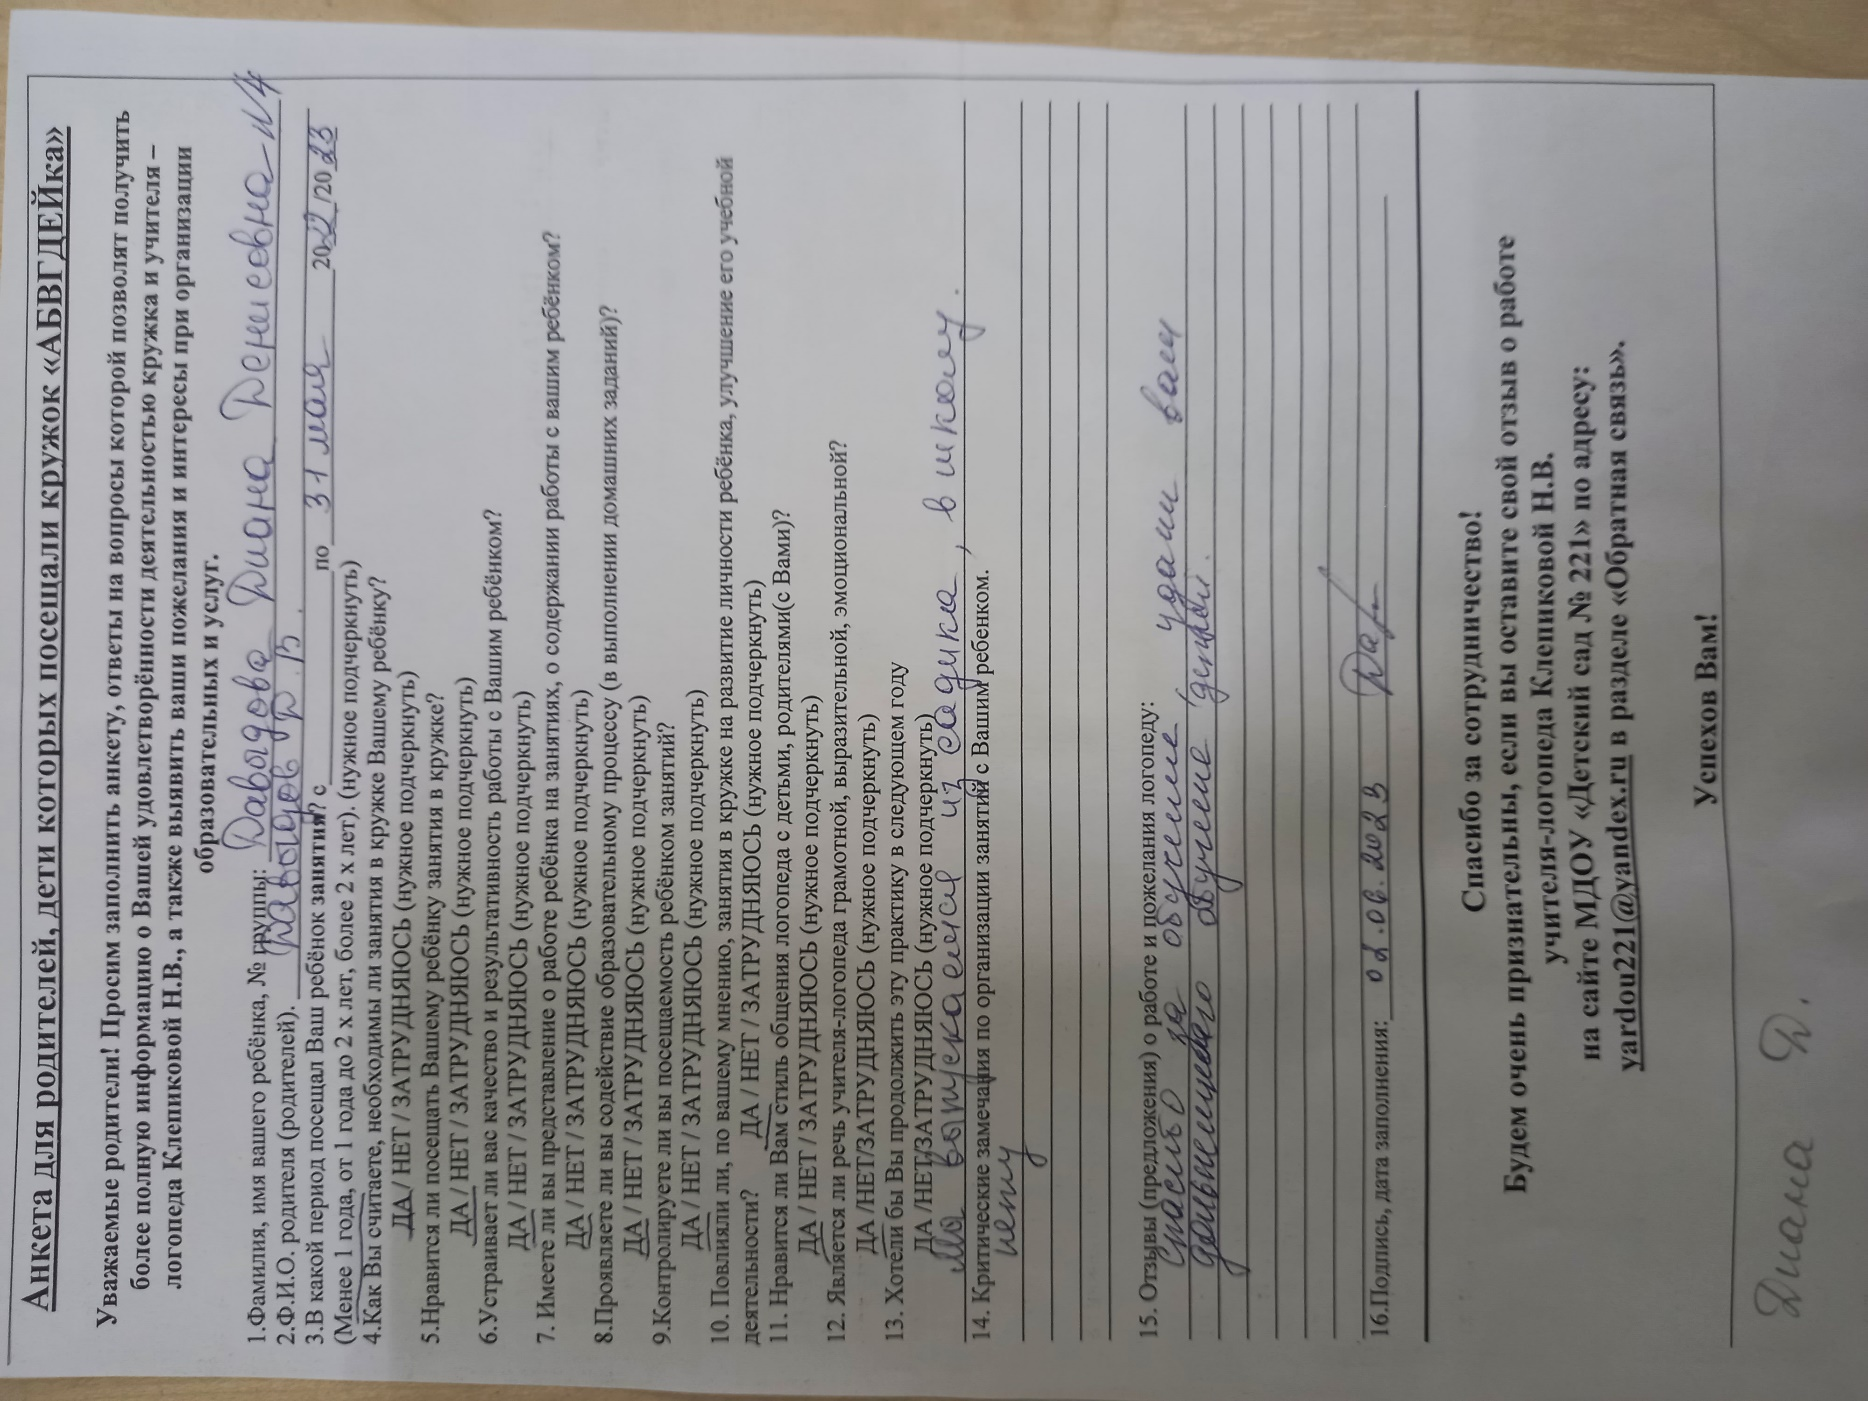 Анкета для родителей, дети которых посещали кружок «АБВГДЕЙка»
Уважаемые родители! Просим заполнить анкету, ответы на вопросы которой позволят получить
более полную информацию о Вашей удовлетворённости деятельностью кружка и учителя –
логопеда Клепиковой Н.В., а также выявить ваши пожелания и интересы при организации
образовательных и услуг.
1.Фамилия, имя вашего ребёнка, № группы: Давыдова Диана Денисовна N4
2.Ф.И.О. родителя (родителей). Давыдов Д. В.
3.В какой период посещал Ваш ребёнок занятия? с по 31 мая 2022/2023
(Менее 1 года, от 1 года до 2 х лет, более 2 х лет). (нужное подчеркнуть)
4.Как Вы считаете, необходимы ли занятия в кружке Вашему ребёнку?
ДА / НЕТ / ЗАТРУДНЯЮСЬ (нужное подчеркнуть)
5.Нравится ли посещать Вашему ребёнку занятия в кружке?
ДА / НЕТ / ЗАТРУДНЯЮСЬ (нужное подчеркнуть)
6.Устраивает ли вас качество и результативность работы с Вашим ребёнком?
ДА / НЕТ / ЗАТРУДНЯЮСЬ (нужное подчеркнуть)
7. Имеете ли вы представление о работе ребёнка на занятиях, о содержании работы с вашим ребёнком?
ДА / НЕТ / ЗАТРУДНЯЮСЬ (нужное подчеркнуть)
8.Проявляете ли вы содействие образовательному процессу (в выполнении домашних заданий)?
ДА / НЕТ / ЗАТРУДНЯЮСЬ (нужное подчеркнуть)
9.Контролируете ли вы посещаемость ребёнком занятий?
ДА / НЕТ / ЗАТРУДНЯЮСЬ (нужное подчеркнуть)
10. Повлияли ли, по вашему мнению, занятия в кружке на развитие личности ребёнка, улучшение его учебной
деятельности? ДА / НЕТ / ЗАТРУДНЯЮСЬ (нужное подчеркнуть)
11. Нравится ли Вам стиль общения логопеда с детьми, родителями(с Вами)?
ДА / НЕТ / ЗАТРУДНЯЮСЬ (нужное подчеркнуть)
12. Является ли речь учителя-логопеда грамотной, выразительной, эмоциональной?
ДА /НЕТ/ЗАТРУДНЯЮСЬ (нужное подчеркнуть)
13. Хотели бы Вы продолжить эту практику в следующем году
ДА /НЕТ/ЗАТРУДНЯЮСЬ (нужное подчеркнуть)
Мы выпускаемся из садика, в школу.
14. Критические замечания по организации занятий с Вашим ребенком.
нету
15. Отзывы (предложения) о работе и пожелания логопеду:
Спасибо за обучение удачи вам
дальнейшего обучение детей.
16.Подпись, дата заполнения: 02.06.2023 Дав
Спасибо за сотрудничество!
Будем очень признательны, если вы оставите свой отзыв о работе
учителя-логопеда Клепиковой Н.В.
на сайте МДОУ «Детский сад № 221» по адресу:
yardou221@yandex.ru в разделе «Обратная связь».
Успехов Вам!
Диана Д.